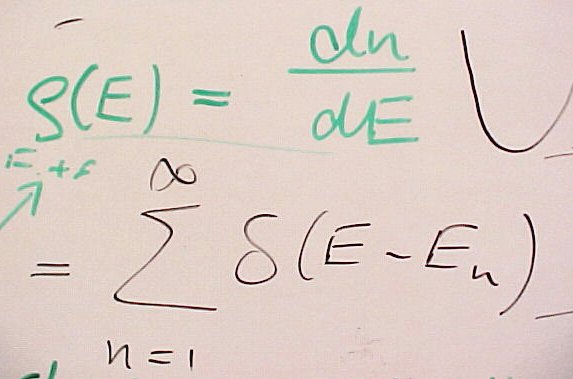 ρ(E) = dn/dE
= ∞ ∑ n=1 δ(E - Eₙ)